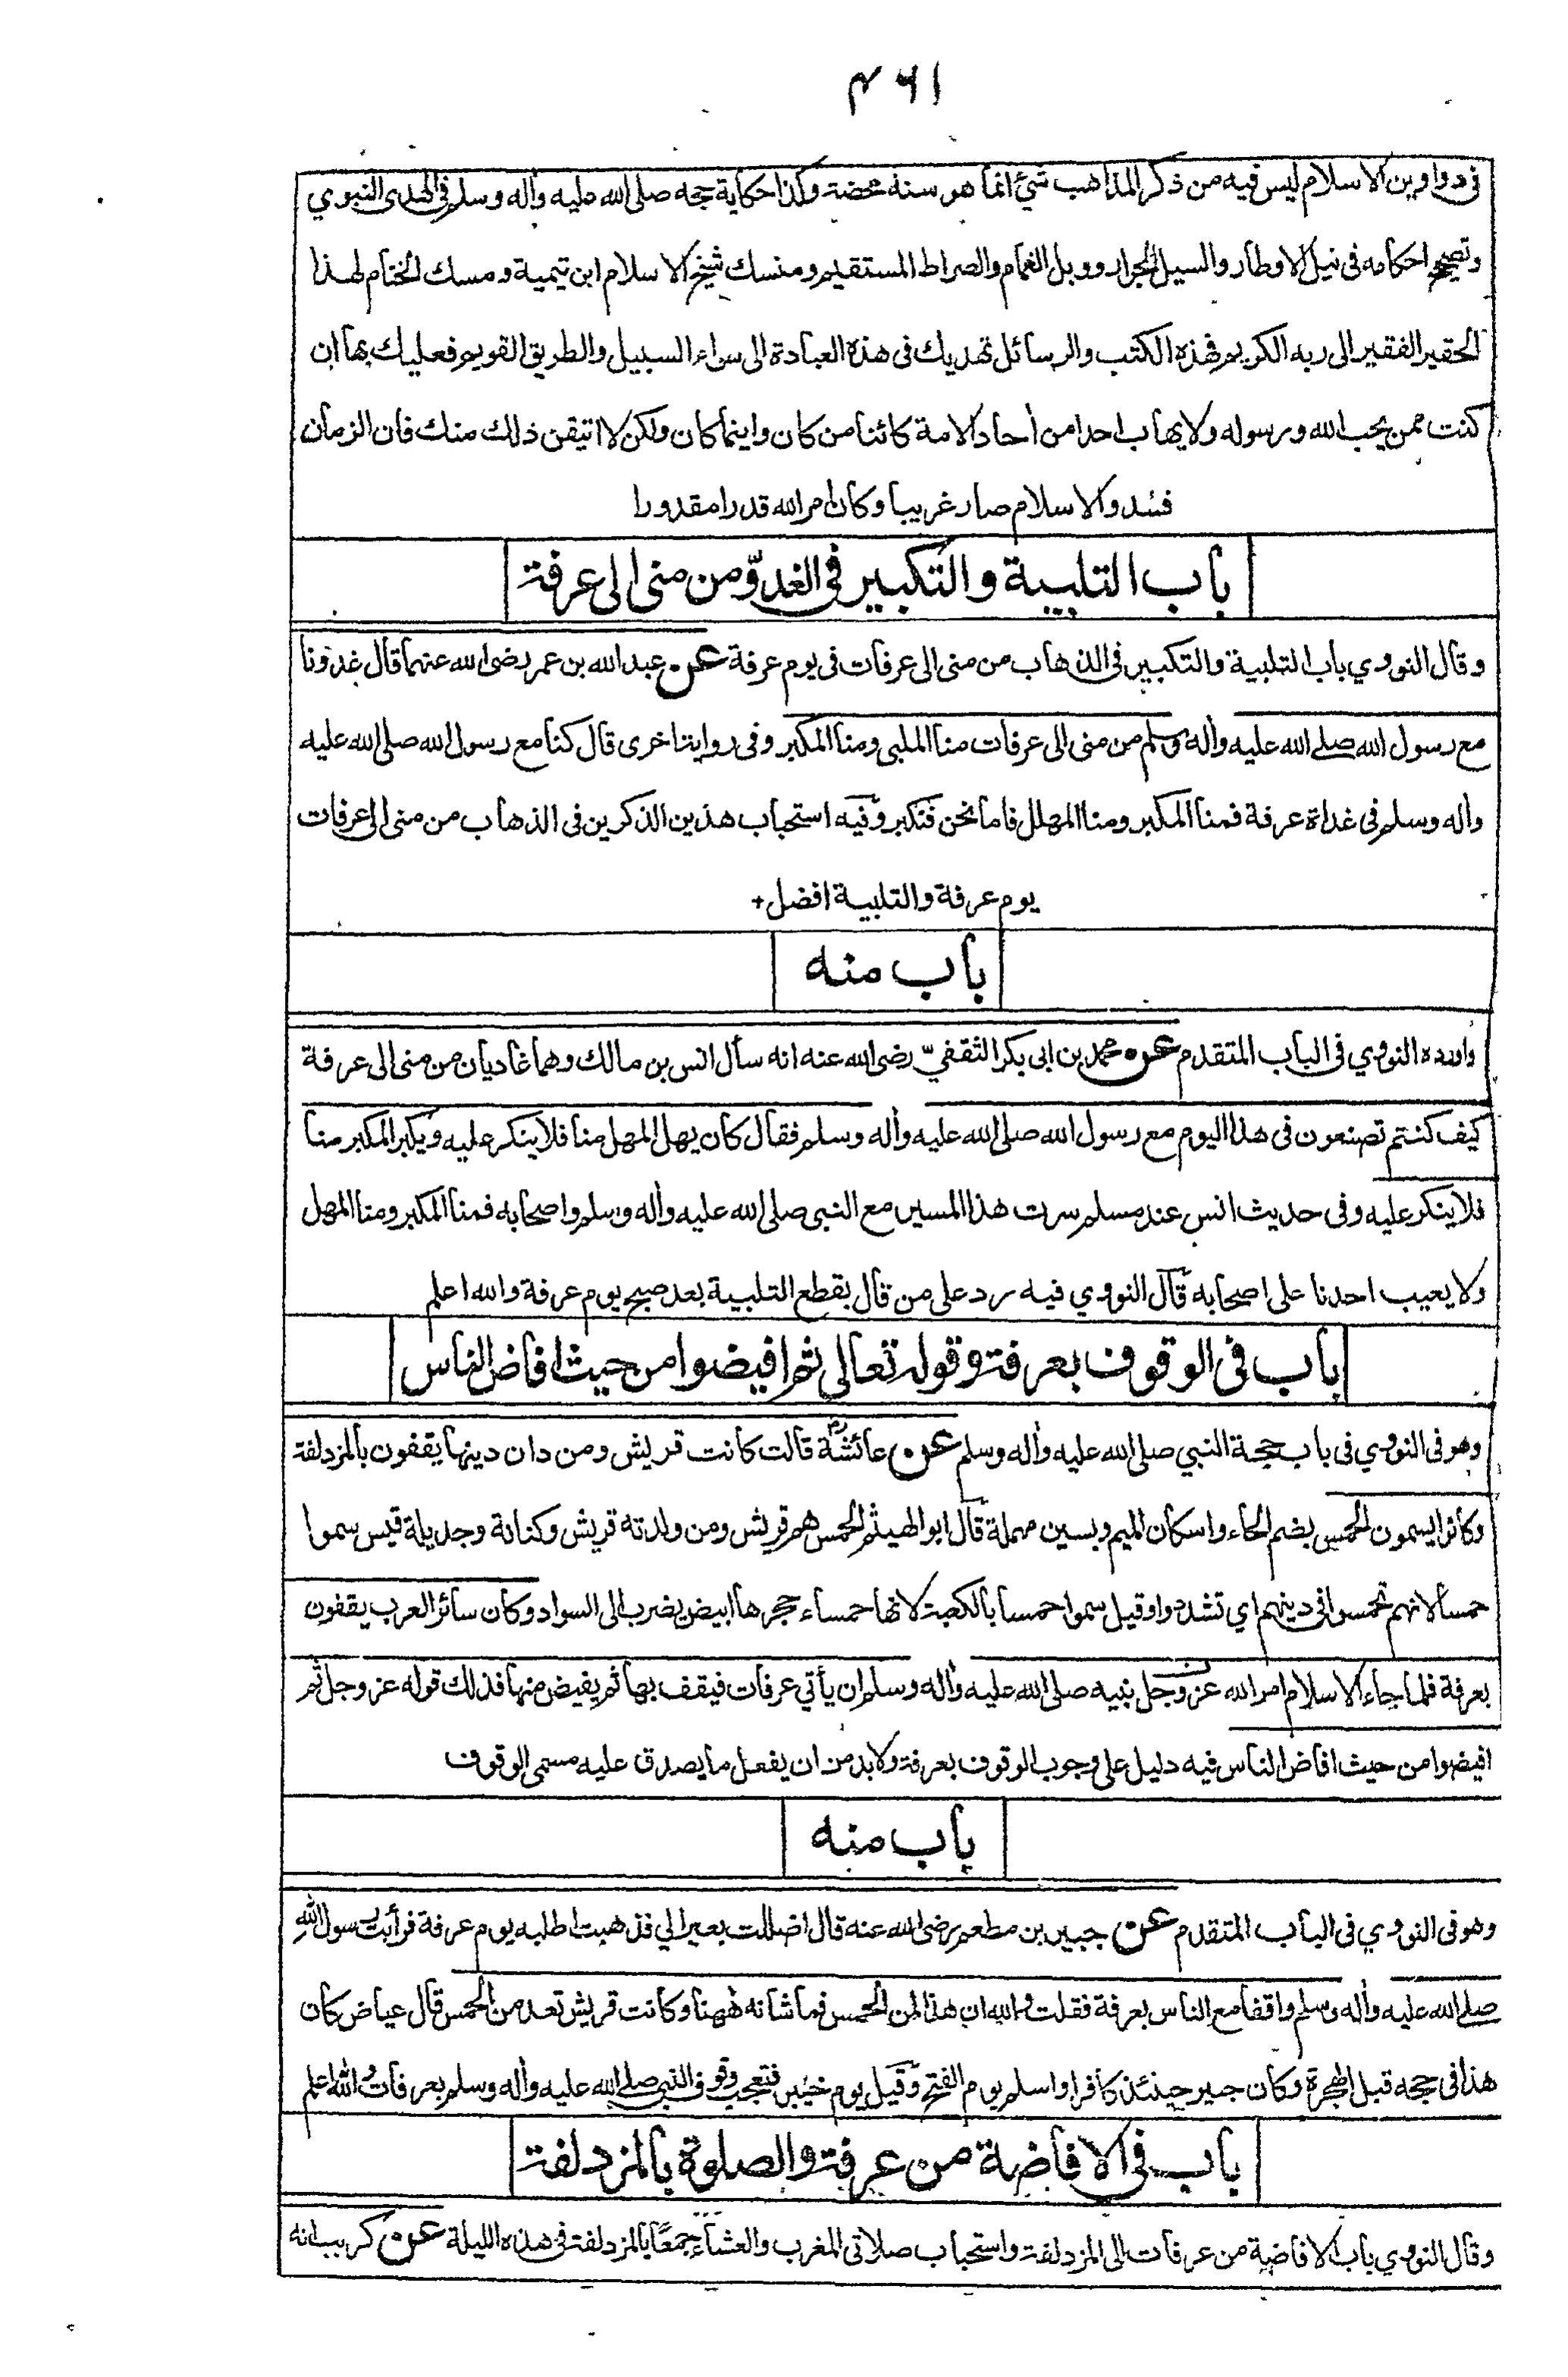 ٤٦١
في دواوين الاسلام ليس فيه من ذكر المذاهب شيء انما هو سنة محضة وكذا حكاية حجه صلى الله عليه وأله وسلم في الهدى النبوي
وتصحيح احكامه فى نيل الاوطار والسيل الجرار ووبل الغمام والصراط المستقيم ومنسك شيخ الاسلام ابن تيمية ومسك الختام لهذا
الحقير الفقير الى ربه الكريم فهذه الكتب والرسائل تهديك فى هذه العبادة الى سواء السبيل والطريق القويم فعليك بها ان
كنت ممن يحب الله ورسوله ولا يهاب احدا من أحاد الامة كائنا من كان واينما كان ولكن لا اتيقن ذلك منك فان الزمان
فسد والاسلام صار غريبا وكان امر الله قدرا مقدورا
باب التلبية والتكبير فى الغدوّ من منى الى عرفة
وقال النووي باب التلبية والتكبير فى الذهاب من منى الى عرفات فى يوم عرفة عن عبد الله بن عمر رضى الله عنهما قال غدونا
مع رسول الله صلى الله عليه وأله وسلم من منى الى عرفات منا الملبى ومنا المكبر وفى رواية اخرى قال كنا مع رسول الله صلى الله عليه
وأله وسلم فى غداة عرفة فمنا المكبر ومنا المهلل فاما نحن فنكبر وفيه استحباب هذين الذكرين فى الذهاب من منى الى عرفات
يوم عرفة والتلبية افضل+
باب منه
واورده النووي فى الباب المتقدم عن محمد بن ابى بكر الثقفيّ رضى الله عنه انه سأل انس بن مالك وهما غاديان من منى الى عرفة
كيف كنتم تصنعون فى هذا اليوم مع رسول الله صلى الله عليه وأله وسلم فقال كان يهل المهل منا فلا ينكر عليه ويكبر المكبر منا
فلا ينكر عليه وفى حديث انس عند مسلم سرت هذا المسير مع النبى صلى الله عليه وأله وسلم واصحابه فمنا المكبر ومنا المهل
ولا يعيب احدنا على اصحابه قال النووي فيه رد على من قال بقطع التلبية بعد صبح يوم عرفة والله اعلم
باب فى الوقوف بعرفة وقوله تعالى ثم افيضوا من حيث افاض الناس
وهو فى النووي فى باب حجة النبي صلى الله عليه وأله وسلم عن عائشة رض قالت كانت قريش ومن دان دينها يقفون بالمزدلفة
وكانوا يسمون الحمس بضم الحاء واسكان الميم وبسين مهملة قال ابو الهيثم الحمس هم قريش ومن ولدته قريش وكنانة وجديلة قيس سموا
حمسا لانهم تحمسوا فى دينهم اي تشددوا وقيل سموا حمسا بالكعبة لانها حمساء حجرها ابيض يضرب الى السواد وكان سائر العرب يقفون
بعرفة فلما جاء الاسلام امر الله عز وجل نبيه صلى الله عليه وأله وسلم ان يأتي عرفات فيقف بها ثم يفيض منها فذلك قوله عز وجل ثم
افيضوا من حيث افاض الناس فيه دليل على وجوب الوقوف بعرفة ولا بد من ان يفعل ما يصدق عليه مسمى الوقوف
باب منه
وهو فى النووي فى الباب المتقدم عن جبير بن مطعم رضى الله عنه قال اضللت بعيرا لي فذهبت اطلبه يوم عرفة فرأيت رسول الله
صلى الله عليه وأله وسلم واقفا مع الناس بعرفة فقلت والله ان هذا لمن الحمس فما شانه ههنا وكانت قريش تعد من الحمس قال عياض كان
هذا فى حجه قبل الهجرة وكان جبير حينئذ كافرا واسلم يوم الفتح وقيل يوم خيبر فتعجب وقوف النبى صلى الله عليه وأله وسلم بعرفات والله اعلم
باب فى الافاضة من عرفة والصلوة بالمزدلفة
وقال النووي باب الافاضة من عرفات الى المزدلفة واستحباب صلاتى المغرب والعشاء جمعًا بالمزدلفة فى هذه الليلة عن كريب انه